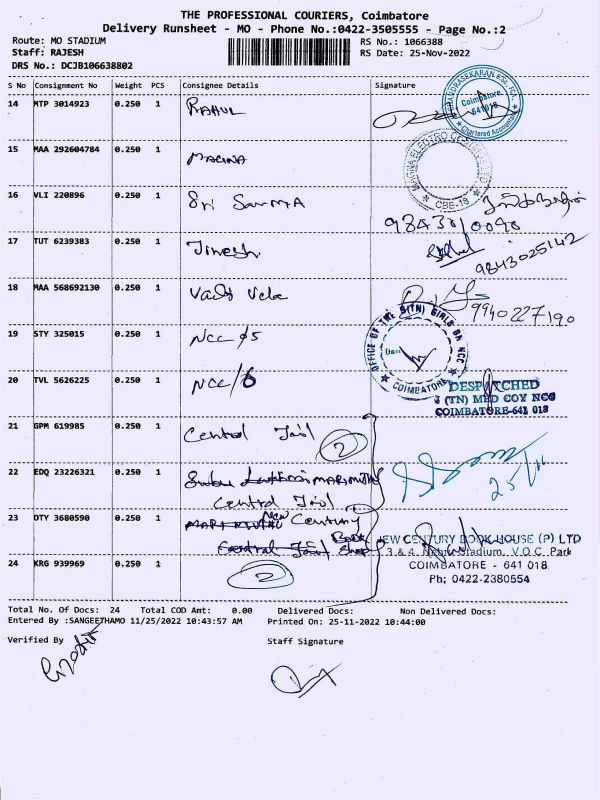 THE PROFESSIONAL COURIERS, Coimbatore
Delivery Runsheet - MO - Phone No.:0422-3505555 - Page No.:2
Route: MO STADIUM RS No.: 1066388
Staff: RAJESH RS Date: 25-Nov-2022
DRS No.: DCJB106638802
S No Consignment No Weight PCS Consignee Details Signature
14 MTP 3014923 0.250 1 RAHUL
CHANDRASEKARAN B.Sc., FCA. Coimbatore 641018 Chartered Accountant
15 MAA 292604784 0.250 1 MAGINA
CBE-18
16 VLI 220896 0.250 1 Sri SarmA
9843010090
17 TUT 6239383 0.250 1 Jinesh
9843025142
18 MAA 568692130 0.250 1 Vady Vela
9940227190
19 STY 325015 0.250 1 NCC /5
OFFICE OF THE 5(TN) GIRLS BN NCC COIMBATORE
20 TVL 5626225 0.250 1 NCC/6
DESPATCHED
(TN) MED COY NCC
COIMBATORE-641 018
21 GPM 619985 0.250 1 Central Jail 2
22 EDQ 23226321 0.250 1
Central Jail
25/11
23 DTY 3680590 0.250 1 New Century
Book Shop
NEW CENTURY BOOK HOUSE (P) LTD
3 & 4, Nehru Stadium, V.O.C. Park
COIMBATORE - 641 018
Ph; 0422-2380554
24 KRG 939969 0.250 1 2
Total No. Of Docs: 24 Total COD Amt: 0.00 Delivered Docs: Non Delivered Docs:
Entered By :SANGEETHAMO 11/25/2022 10:43:57 AM Printed On: 25-11-2022 10:44:00
Verified By Staff Signature